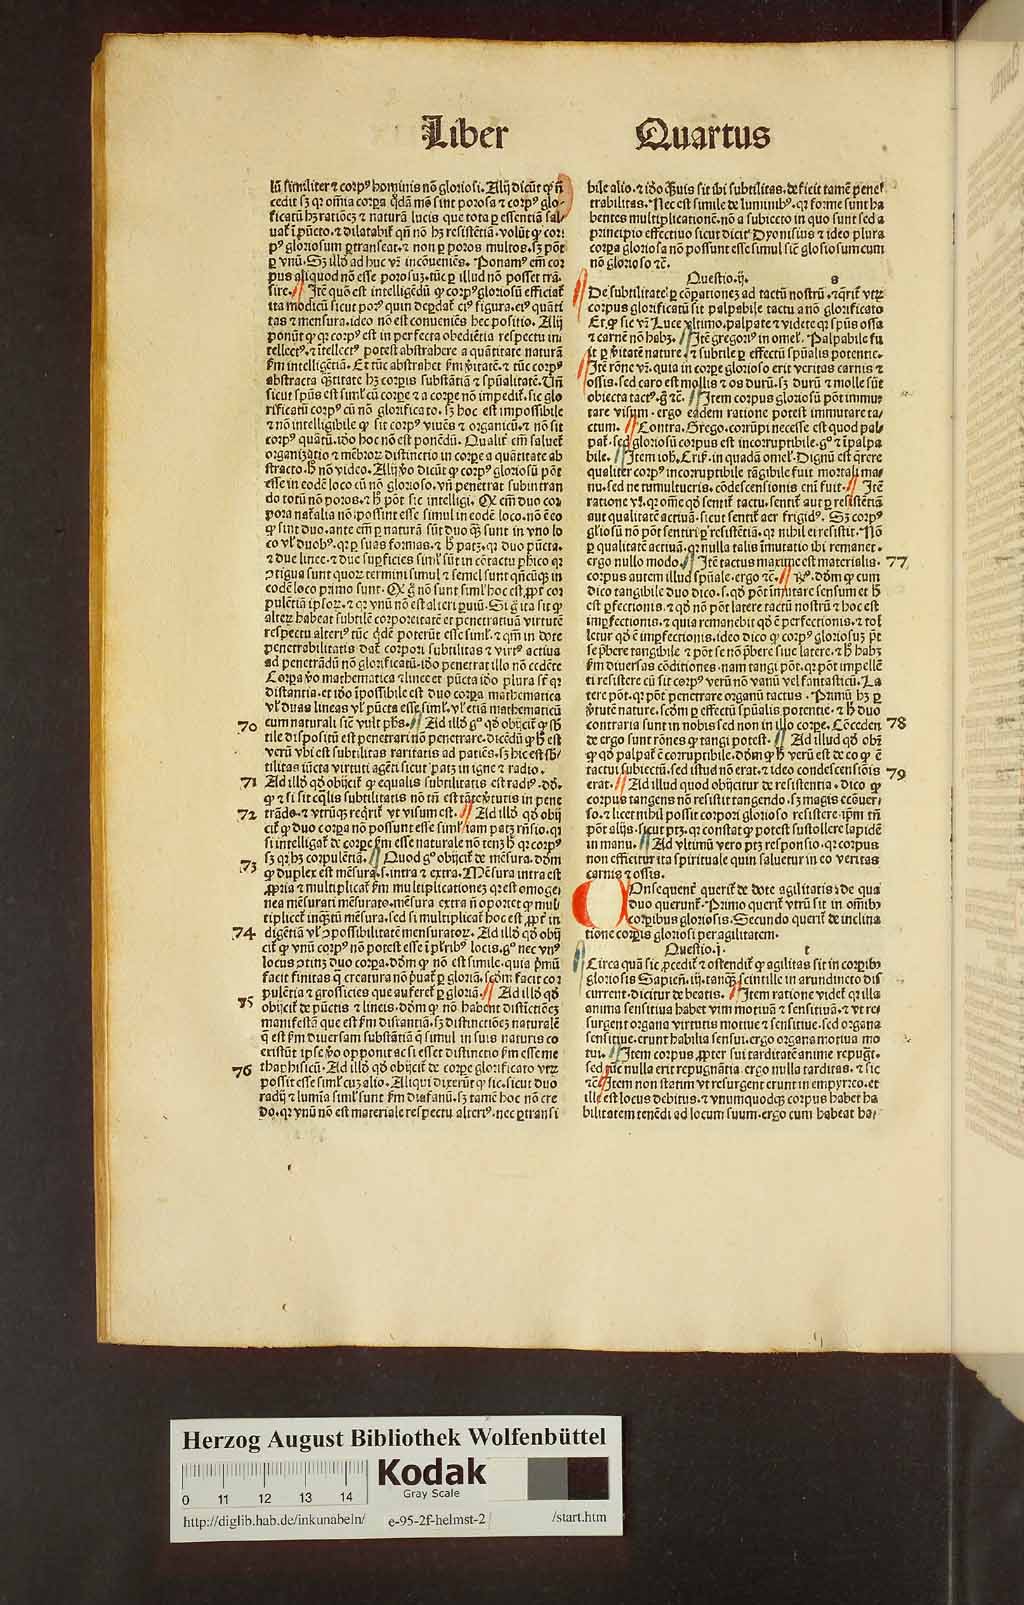 Liber Quartus
lū similiter ⁊ corpꝰ hominis nō gloriosi. Alij dicūt ꝙ n̄
cedit sꝫ qꝛ omīa corꝑa q̄dā mō sint porosa ⁊ corpꝰ glo-
ficatū hꝫ rationē ⁊ naturā lucis que tota ꝑ essentiā sal-
pꝰ gloriosum ꝑtranseat. ⁊ non ꝑ poros multos. sꝫ pōt
ꝑ vnū. Sꝫ illđ ad huc vr̄ incōueniēs. Ponamꝰ em̄ cor
pus aliquod nō esse porosuꝫ. tūc ꝑ illud nō posset trā-
sire. Itē quō est intelligēdū ꝙ corpꝰ gloriosū efficiat᷑
ita modicū sicut porꝰ
tas ⁊ mensura. ideo nō est conueniēs hec positio. Alij
ponūt ꝙ qꝛ corpꝰ est in perfecta obediētia respectu ini
tellectꝰ. ⁊ ītellectꝰ potest abstrahere a quātitate naturā
ẜm intelligētiā. Et tūc abstrahet ẜm ꝟitatē. ⁊ tūc corpꝰ
abstracta q̄ntitate hꝫ corꝑis substātiā ⁊ spūalitatē. Un̄
sicut spūs est siml̄ cū corꝑe ⁊ a corꝑe nō impedit᷑. sic glo
rificatū corpꝰ cū nō glorificato. sꝫ hoc est impossibile
⁊ nō intelligibile ꝙ sit corpꝰ viuēs ⁊ organicū. ⁊ nō sit
corpꝰ quātū. iđo hoc nō est ponēdū. Qualit᷑ em̄ saluet᷑
organizatio ⁊ mēbroꝝ distinctio in corꝑe a quātitate ab
stracto. h̄ nō video. Alij ꝟo dicūt ꝙ corpꝰ gloriosū pōt
esse in eodē loco cū nō glorioso. vn̄ penetrat subintran
do totū nō poros. ⁊ h̄ pōt sic intelligi. Qꝛ em̄ duo cor
pora naturalia nō possint esse simul in eodē loco. nō ē eo
ꝙ sint duo. ante em̄ ꝑ naturā sūt duo q̄ sunt in vno lo
co vl̓ duobꝰ. qꝛ ꝑ suas formas. ⁊ h̄ patꝫ. qꝛ duo pūcta.
⁊ due linee. ⁊ due suꝑficies siml̄ sūt in cōtactu phico qꝛ
ꝯtigua sunt quoꝝ termini simul ⁊ semel sunt
codē loco primo sunt. Qꝛ g̊ nō sunt siml̄ hoc est ꝓpt᷑ cor
pulētiā ipsoꝝ. ⁊ qꝛ vnū nō est alteri ꝑuiū. Si g̊ ita sit ꝙ
alteꝝ habeat subtilē corporeitatē et penetratiuā virtutē
respectu alteriꝰ tūc q̄dē poterūt esse siml̄. ⁊ qm̄ in dote
penetrabilitatis dat᷑ corpori subtilitas ⁊ virtꝰ actiua
ad penetrādū nō glorificatū. iđo penetrat illo nō cedēte
Corꝑa ꝟo mathematica ⁊ linee et pūcta iđo plura sūt qꝛ
distantia. et iđo īpossibile est duo corꝑa mathematica
vl̓ duas lineas vl̓ pūcta esse siml̄. vl̓ etiā mathematicū
70 eum naturali sic̄ vult phs. Ad illđ gͦ qđ obijcit᷑ ꝙ sb̄
tile dispositū est penetrari nō penetrare. dicēdū ꝙ h̄ est
verū vbi est subtilitas raritatis ad patiēs. sꝫ hic est sb̄-
tilitas iūcta virtuti agēti sicut patꝫ in igne ⁊ radio.
71 Ad illđ qđ obijcit᷑ ꝙ equalis subtilitatis est radiꝰ. đđ.
ꝙ ⁊ si sit eq̄lis subtilitatis nō tn̄ est tāte ꝟturis in pene
72 trādo. ⁊ vtrūqꝫ reqrit᷑ vt visum est. Ad illđ qđ obij
cit᷑ ꝙ duo corꝑa nō possunt esse siml̄ iam patꝫ rn̄sio. qꝛ
si intelligat᷑ de corꝑe ẜm esse naturale nō tenꝫ h̄ qꝛ corpꝰ
73 sꝫ qꝛ hꝫ corpulētiā. Quod gͦ obijcit᷑ de mēsura. dđm
ꝙ duplex est mēsura. s. intra ⁊ extra. Mēsura intra est
ꝓpria ⁊ multiplicat᷑ ẜm multiplicationeꝫ qꝛ est omoge
nea mēsurati mēsurato. mēsura extra n̄ oportet ꝙ mul
tiplicet᷑ inqꝫtū mēsura. sed si multiplicat᷑ hoc est ꝓpt᷑ in
74 digētiā vl̓ ꝯpossibilitatē mensuratoꝝ. Ad illđ qđ obij
cit᷑ ꝙ vnū corpꝰ nō potest esse ī pl̓ribꝰ locis. gͦ nec vnꝰ
locus ꝯtinꝫ duo corꝑa. dđm ꝙ nō est simile. quia pꝛimū
facit finitas q̄ creatura nō pꝛiuat᷑ ꝑ gloriā. scđm facit cor
pulētia ⁊ grossicies que aufert᷑ ꝑ gloriā. Ad illđ qđ
75 obijcit᷑ de pūctis ⁊ lineis. dđm ꝙ nō habent distictiōeꝫ
manifestā que est ẜm distantiā. sꝫ distinctiōeꝫ naturalē
q̄ est ẜm diuersam substātiā q̄ simul in suis naturis co
existūt ipse ꝟo opponit ac si esset distinctio ẜm esse me
76 thaphisicū. Ad illđ qđ obijcit᷑ de corꝑe glorificato vtꝝ
possit esse siml̄ cuꝫ alio. Aliqui dixerūt ꝙ sic. sicut duo
radij ⁊ lumīa siml̄ sunt ẜm diafanū. sꝫ tamē hoc nō cre
do. qꝛ vnū nō est materiale respectu alteriꝰ. nec ꝑtransi
bile alio. ⁊ iđo q̄uis sit ibi subtilitas. deficit tamē penet᷑
trabilitas. Nec est simile de luminibꝰ. qꝛ forme sunt ha
bentes multiplicationē. nō a subiecto in quo sunt sed a
principio effectiuo sicut dicit Dyonisius ⁊ ideo plura
corꝑa gloriosa nō possunt esse simul sic̄ gloriosum cum
nō glorioso ⁊c̄.
Questio .ij. s
De subtilitate ꝑ cōꝑationeꝫ ad tactū nostrū. ⁊ q̄rit᷑ vtꝝ
corpus glorificatū sit palpabile tactu a nō glorificato
Et ꝙ sic vr̄. Luce vltimo. palpate ⁊ videte qꝛ spūs ossa
⁊ carnē nō habꝫ. Itē gregoriꝰ in omel̓. Palpabile fu
it ꝑ ꝟitatē nature. ⁊ subtile ꝑ effectū spūalis potentie.
Itē rōne vr̄. quia in corꝑe glorioso erit veritas carnis ⁊
ossis. sed caro est mollis ⁊ os durū. sꝫ durū ⁊ molle sūt
obiecta tactꝰ. g̊ ⁊c̄. Item corpus gloriosū pōt immu-
tare visum. ergo eadem ratione potest immutare ta-
ctum. Contra. Grego. corūpi necesse est quod pal-
pat᷑. sed gloriosū corpus est incorruptibile. gͦ ⁊ īpalpa
bile. Item ioh. Crisꝰ. in quadā omel̓. Dignū est q̄rere
qualiter corpꝰ incorruptibile tāgibile fuit mortali ma-
nu. sed ne tumultueris. cōdescensionis enī fuit. Itē
ratione vr̄. qꝛ omē qđ sentit᷑ tactu. sentit᷑ aut ꝑ resistētiā
aut qualitatē actiuā. sicut sentit᷑ aer frigidꝰ. Sꝫ corpꝰ
gliosū nō pōt sentiri ꝑ resistētiā. qꝛ nihil ei resistit. Nō
ꝑ qualitatē actiuā. qꝛ nulla talis īmutatio ibi remanet.
ergo nullo modo. Itē tactus maxime est materialis. 77
corpus autem illud spūale. ergo ⁊c̄. Rꝰ. dđm ꝙ cum
dico tangibile duo dico. s. qđ pōt īmutare sensum et h̄
est ꝑfectionis. ⁊ qđ nō pōt latere tactū nostrū ⁊ hoc est
imꝑfectionis. ⁊ quia remanebit qđ ē ꝑfectionis. ⁊ tol
letur qđ ē imꝑfectionis. ideo dico ꝙ corpꝰ gloriosuꝫ pōt
se ꝓbere tangibile ⁊ pōt se nō ꝓbere siue latere. ⁊ h̄ habꝫ
ẜm diuersas cōditiones. nam tangi pōt. qꝛ pōt impellē
ti resistere cū sit corpꝰ verū nō vanū vel fantasticū. La
tere pōt. qꝛ pōt penetrare organū tactus. Primū hꝫ ꝑ
ꝟtutē nature. scđm ꝑ effectū spūalis potentie. ⁊ h̄ duo
contraria sunt in nobis sed non in illo corꝑe. Cōceden 78
de ergo sunt rōnes ꝙ tangi potest. Ad illud qđ obꝫ
ꝙ qđ palpat᷑ ē corruptibile. dđm ꝙ h̄ verū est de eo ꝙ ē
tactui subiectū. sed istud nō erat. ⁊ ideo condescensiōis 79
erat. Ad illud quod obijcitur de resistentia. dico ꝙ
corpus tangens nō resistit tangendo. sꝫ magis ecōuer-
so. ⁊ licet nihil possit corpori glorioso resistere. ipm̄ tn̄
pōt alijs. sicut ptꝫ. qꝛ constat ꝙ potest sustollere lapidē
in manu. Ad vltimū vero ptꝫ responsio. qꝛ corpus
non efficitur ita spirituale quin saluetur in eo veritas
carnis ⁊ ossis.
COnsequenť querit᷑ de dote agilitatis ⁊ de qua
duo querunt᷑. Primo querit᷑ vtrū sit in omībꝰ
corꝑibus gloriosis. Secundo querit᷑ de inclina
tione corꝑis gloriosi per agilitatem.
Questio .j. t
Circa quā sic ꝓcedit᷑ ⁊ ostendit᷑ ꝙ agilitas sit in corꝑibꝰ
gloriosis Sapien̄. iij. tanqꝫ scintille in arundineto dis
current. dicitur de beatis. Item ratione videt᷑ qꝛ illa
anima sensitiua habet vim motiuā ⁊ sensitiuā. ⁊ vt re-
surgent organa virtutis motiue ⁊ sensitiue. sed organa
sensitiue. erunt habilia sensui. ergo organa motiua mo
tui. Item corpus ꝓpter sui tarditatē anime repugt᷑.
sed tūc nulla erit repugnātia. ergo nulla tarditas. ⁊ sic
⁊c̄. Item non statim vt resurgent erunt in empyreo. et
ille est locus debitus. ⁊ vnumquodqꝫ corpus habet ha
bilitatem tenēdi ad locum suum. ergo cum habeat ha-
Herzog August Bibliothek Wolfenbüttel
Kodak
Gray Scale
0 11 12 13 14
http://diglib.hab.de/inkunabeln/ e-95-2f-helmst-2 /start.htm